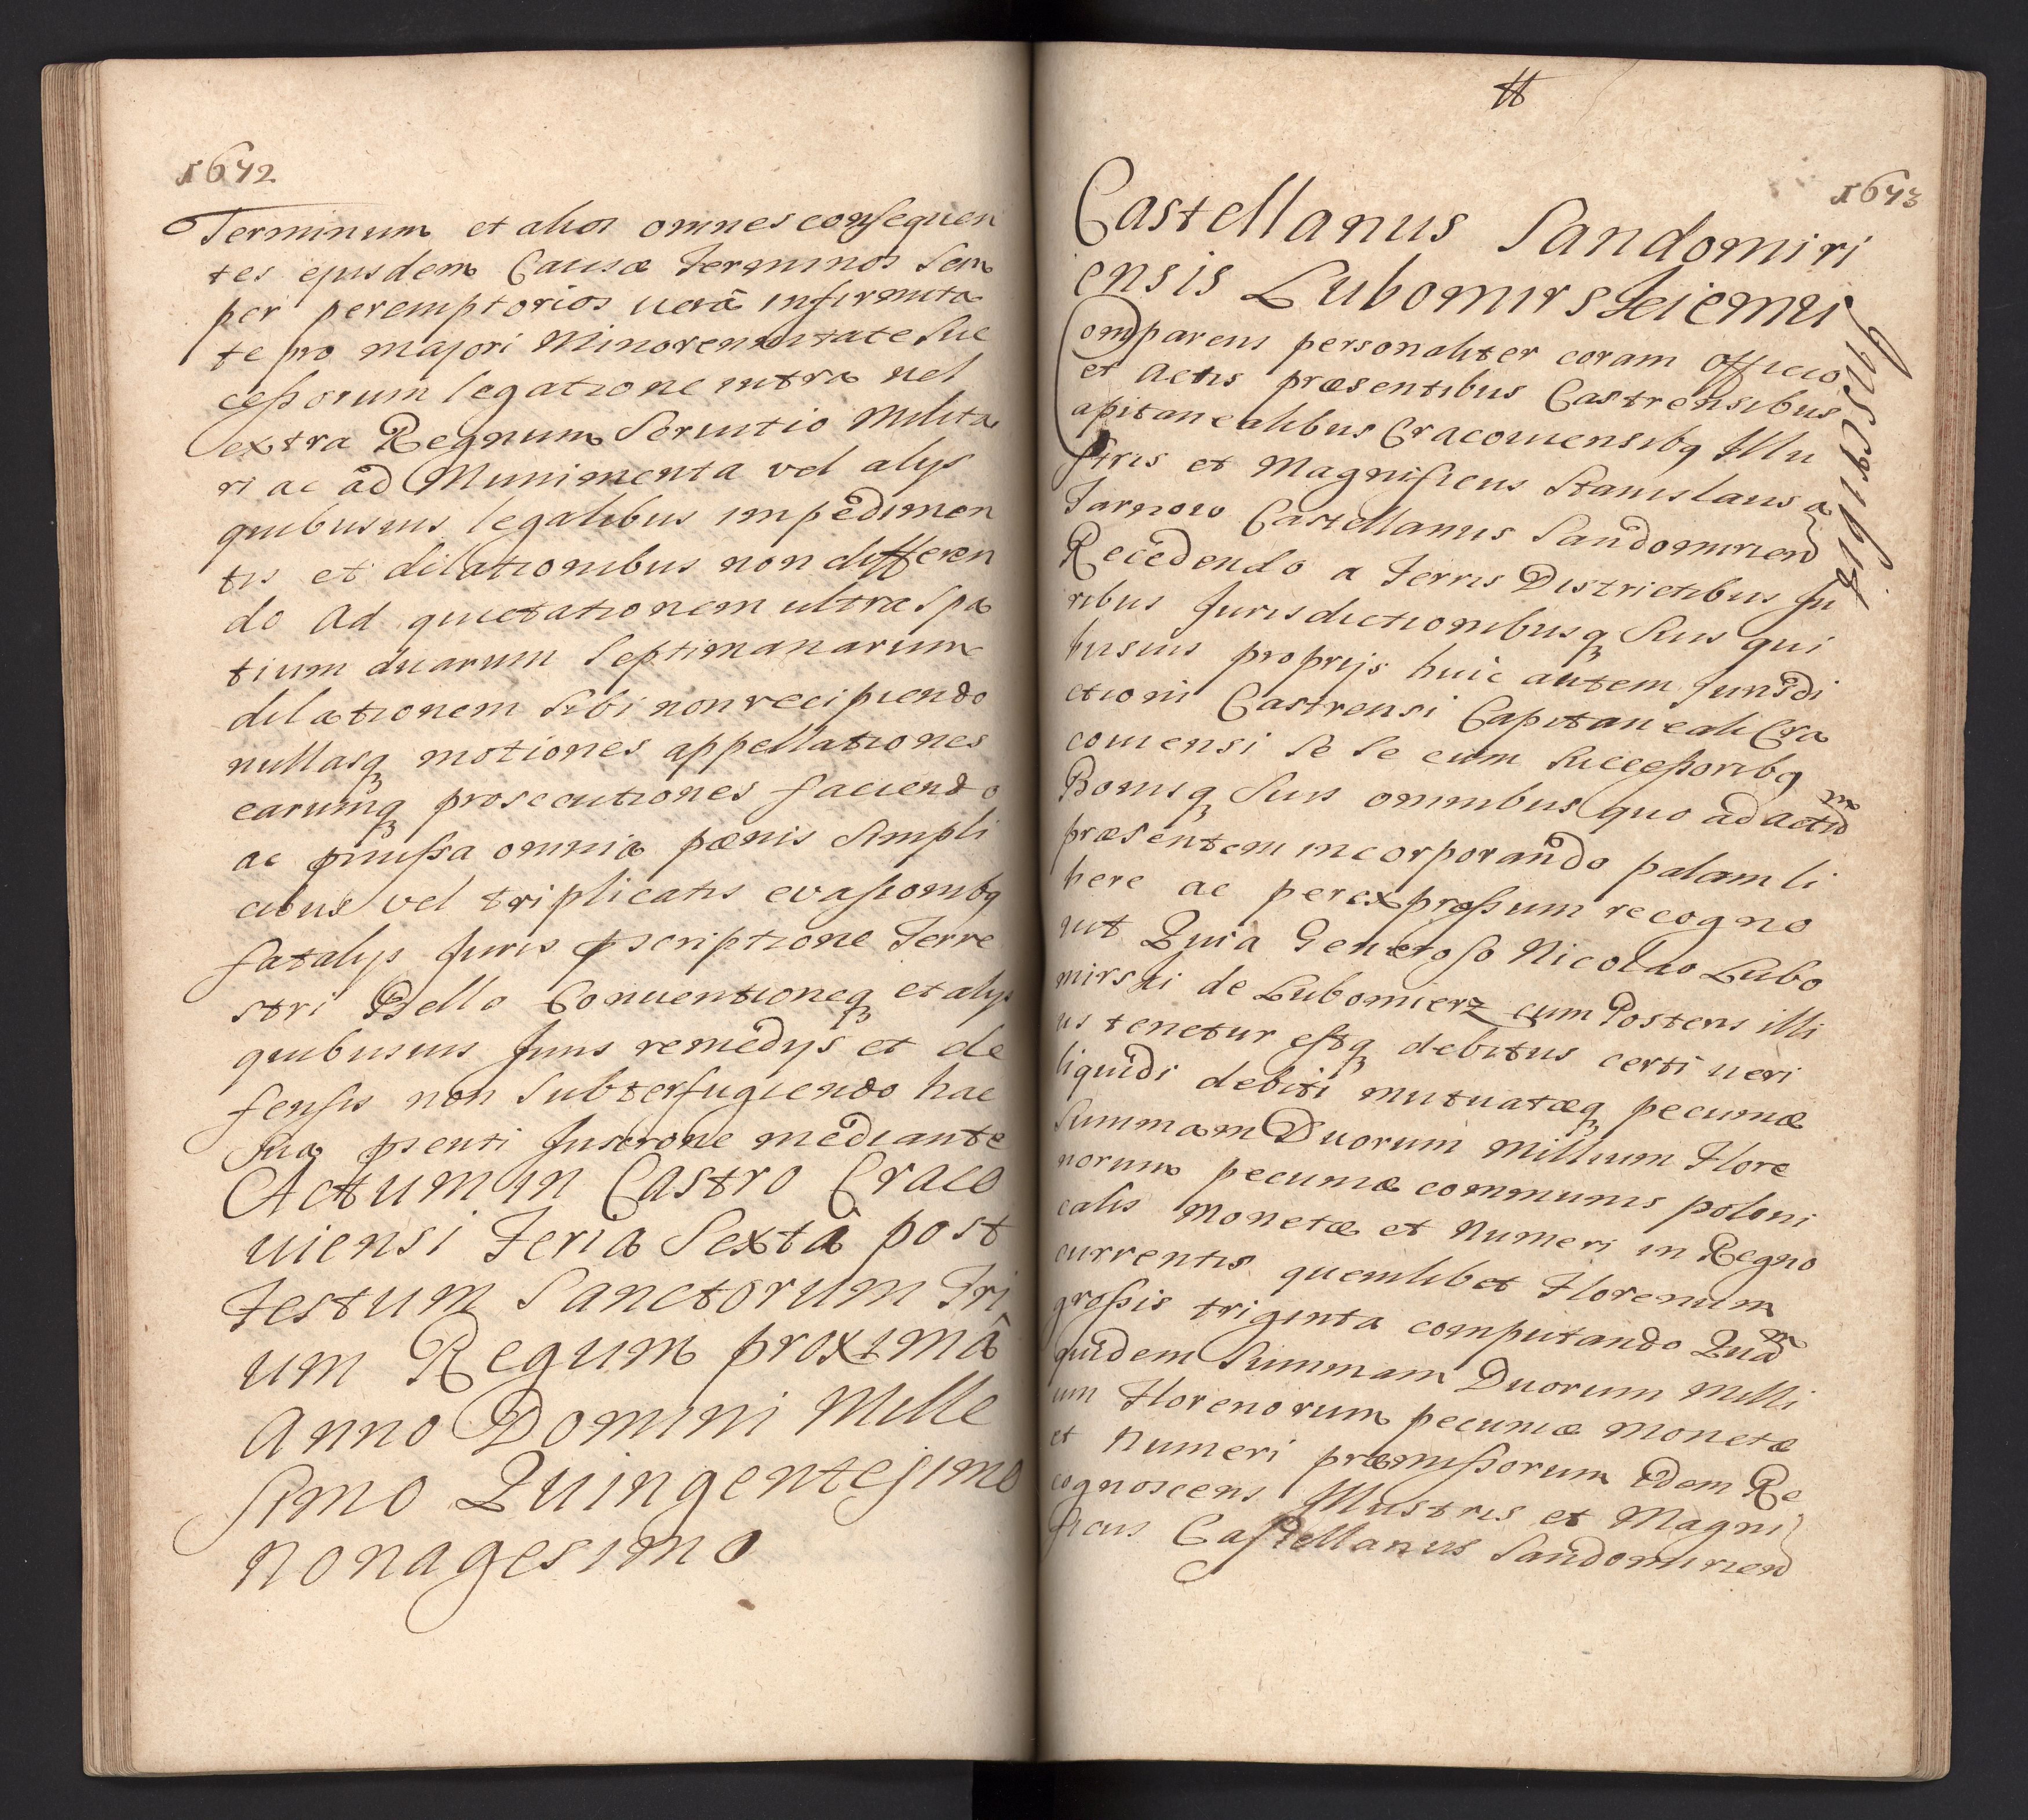 1642
Terminum et alios omnes consequen
tes ejusdem Causæ Terminos Sem
per peremptorios uerâ infirmita
te pro majori Minorennitate Suc
ceßorum legatione intra uel
extra Regnum Seruitio Milita
ri ac ad Munimenta vel alijs
quibusuis legalibus impedimen
tis et dilationibus non differen
do ad quietationem ultra Spa
tium duarum Septimanarum
dilationem Sibi non recipiendo
nullasq motiones appellationes
earumq prosecutiones faciendo
ac pmißa omnia pænis Simpli
cibus vel triplicatis evasionibq
fatalijs Juris pscriptione Terre
stri Bello Conuentioneq et alijs
quibusuis Juris remedijs et de
fensis non Subterfugiendo hac
Sua psenti Inscrone mediante
Actum in Castro Craco
uiensi Feria Sexta post
Festum Sanctorum Tri
um Regum proximâ
Anno Domini Mille
Simo Quingentesimo
Nonagesimo
1643
Castellanus Sandomiri
ensis Lubomirskiemu
Inscribit
Comparens personaliter coram Officio
et Actis præsentibus Castrensibus
Capitanealibus Cracouiensibq Illu
stris et Magnificus Stanislaus a
Tarnow Castellanus Sandomirien
Recedendo a Terris Districtibus Ju
ribus Jurisdictionibusq Suis qui
busuis proprijs huic autem Jurisdi
ctioni Castrensi Capitaneali Cra
couiensi Se Se cum Succeßoribq
Bonisq Suis omnibus quo ad actum
præsentem incorporando palam li
bere ac per expreßum recogno
uit Quia Generoso Nicolao Lubo
mirski de Lubomierz cum Posteris illi
us tenetur estq debitus certi ueri
liquidi debiti mutuatæq pecuniæ
Summam Duorum Millium Flore
norum pecuniæ communis poloni
calis Monetæ et Numeri in Regno
currentis quemlibet Florenum
großis triginta computando Quam
quidem Summam Duorum Milli
um Florenorum pecuniæ Monetæ
et Numeri præmißorum idem Re
cognoscens Illustris et Magni
ficus Castellanus Sandomirien